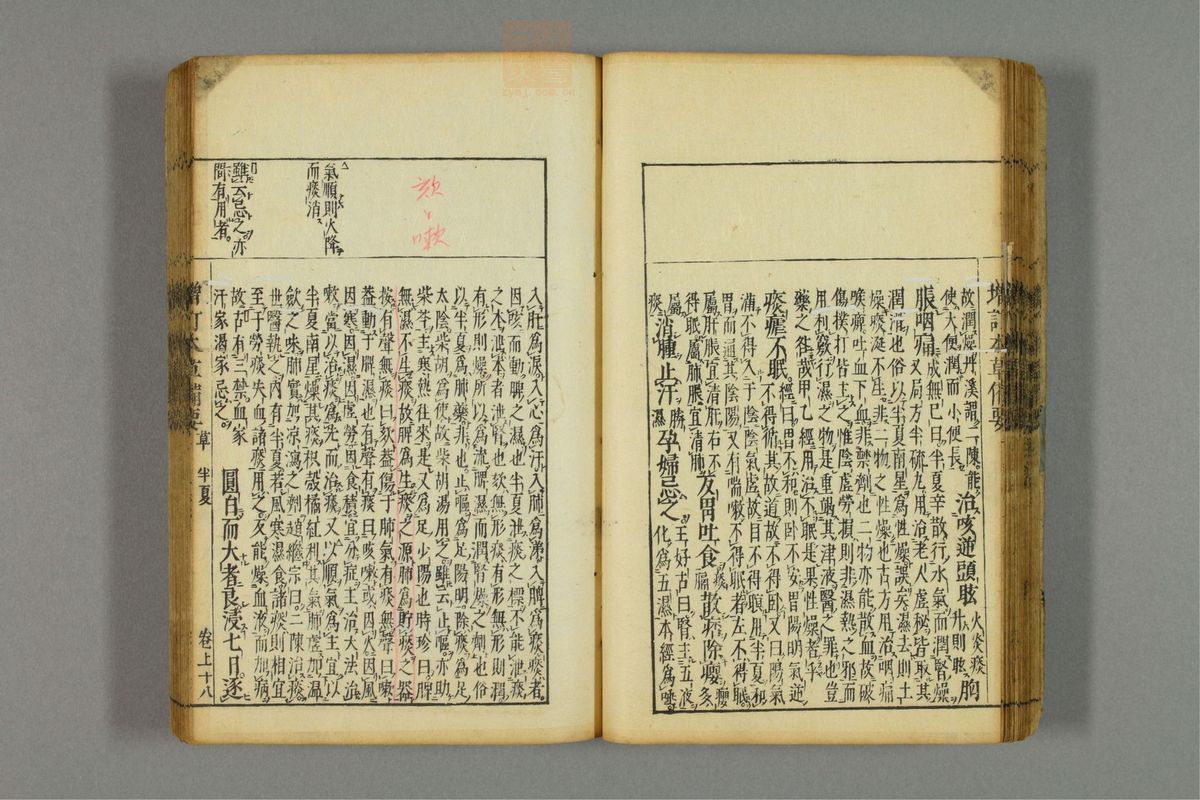 增訂本草備要
故潤燥丹溪謂二陳能
使大便潤而小便長
治咳逆頭眩
火炎痰
升則眩
胸
脹咽痛
成無已曰半夏辛散行水氣而潤腎燥
又局方半硫丸用治老人虛秘皆取其
潤滑也俗以半夏南星爲性燥誤矣濕去則土
燥痰涎不生非二物之性燥也古方用治咽痛
喉痺吐血下血非禁劑也二物亦能散血故破
傷撲打皆主之惟陰虛勞損則非濕熱之邪而
用利竅行濕之物是重竭其津液醫之罪也豈
藥之咎哉甲乙經用治不眠是果性燥者乎
痰瘧不眠
經曰胃不和則卧不安胃陽明氣逆
不得從其故道故不得卧又曰陽氣
滿不得入于陰陰氣虛故目不得瞑用半夏和
胃而通其陰陽又有喘嗽不得眠者左不得眠
屬肝脹宜清肝右不
得眠屬肺脹宜清肺
反胃吐食
痰
膈
散痞除癭
癭多
屬
痰
消腫止汗
勝
濕
孕婦忌之
王好古曰腎主五液
化爲五濕本經爲唾
入肝爲淚入心爲汗入肺爲涕入脾爲痰痰者
因咳而動脾之濕也半夏泄痰之標不能泄痰
之本泄本者泄腎也欬無形痰有形無形則潤
有形則燥所以爲流脾濕而潤腎燥之劑也俗
以半夏爲肺藥非也止嘔爲足陽明除痰爲足
太陰柴胡爲之使故柴胡湯用之雖云止嘔亦助
柴芩主寒熱往來是又爲足少陽也時珍曰脾
無濕不生痰故脾爲生痰之源肺爲貯痰之器
按有聲無痰曰欬蓋傷于肺氣有痰無聲曰嗽
蓋動于脾濕也有聲有痰曰咳嗽或因火因風
因寒因濕因虛勞因食積宜分症主治大法治
嗽當以治痰爲先而治痰又以順氣爲主宜以
半夏南星燥其痰枳殼橘紅利其氣肺虛加溫
斂之味肺實加凉瀉之劑趙繼宗曰二陳治痰
世醫執之內有半夏若風寒濕食諸痰則相宜
至于勞痰失血諸痰用之反能燥血液而加病
故古有三禁血家
汗家渴家忌之
圓白而大者良浸七日逐
氣順則火降
而痰消
雖云忌之亦
間有用者
增訂本草備要 草 半夏 卷上十八